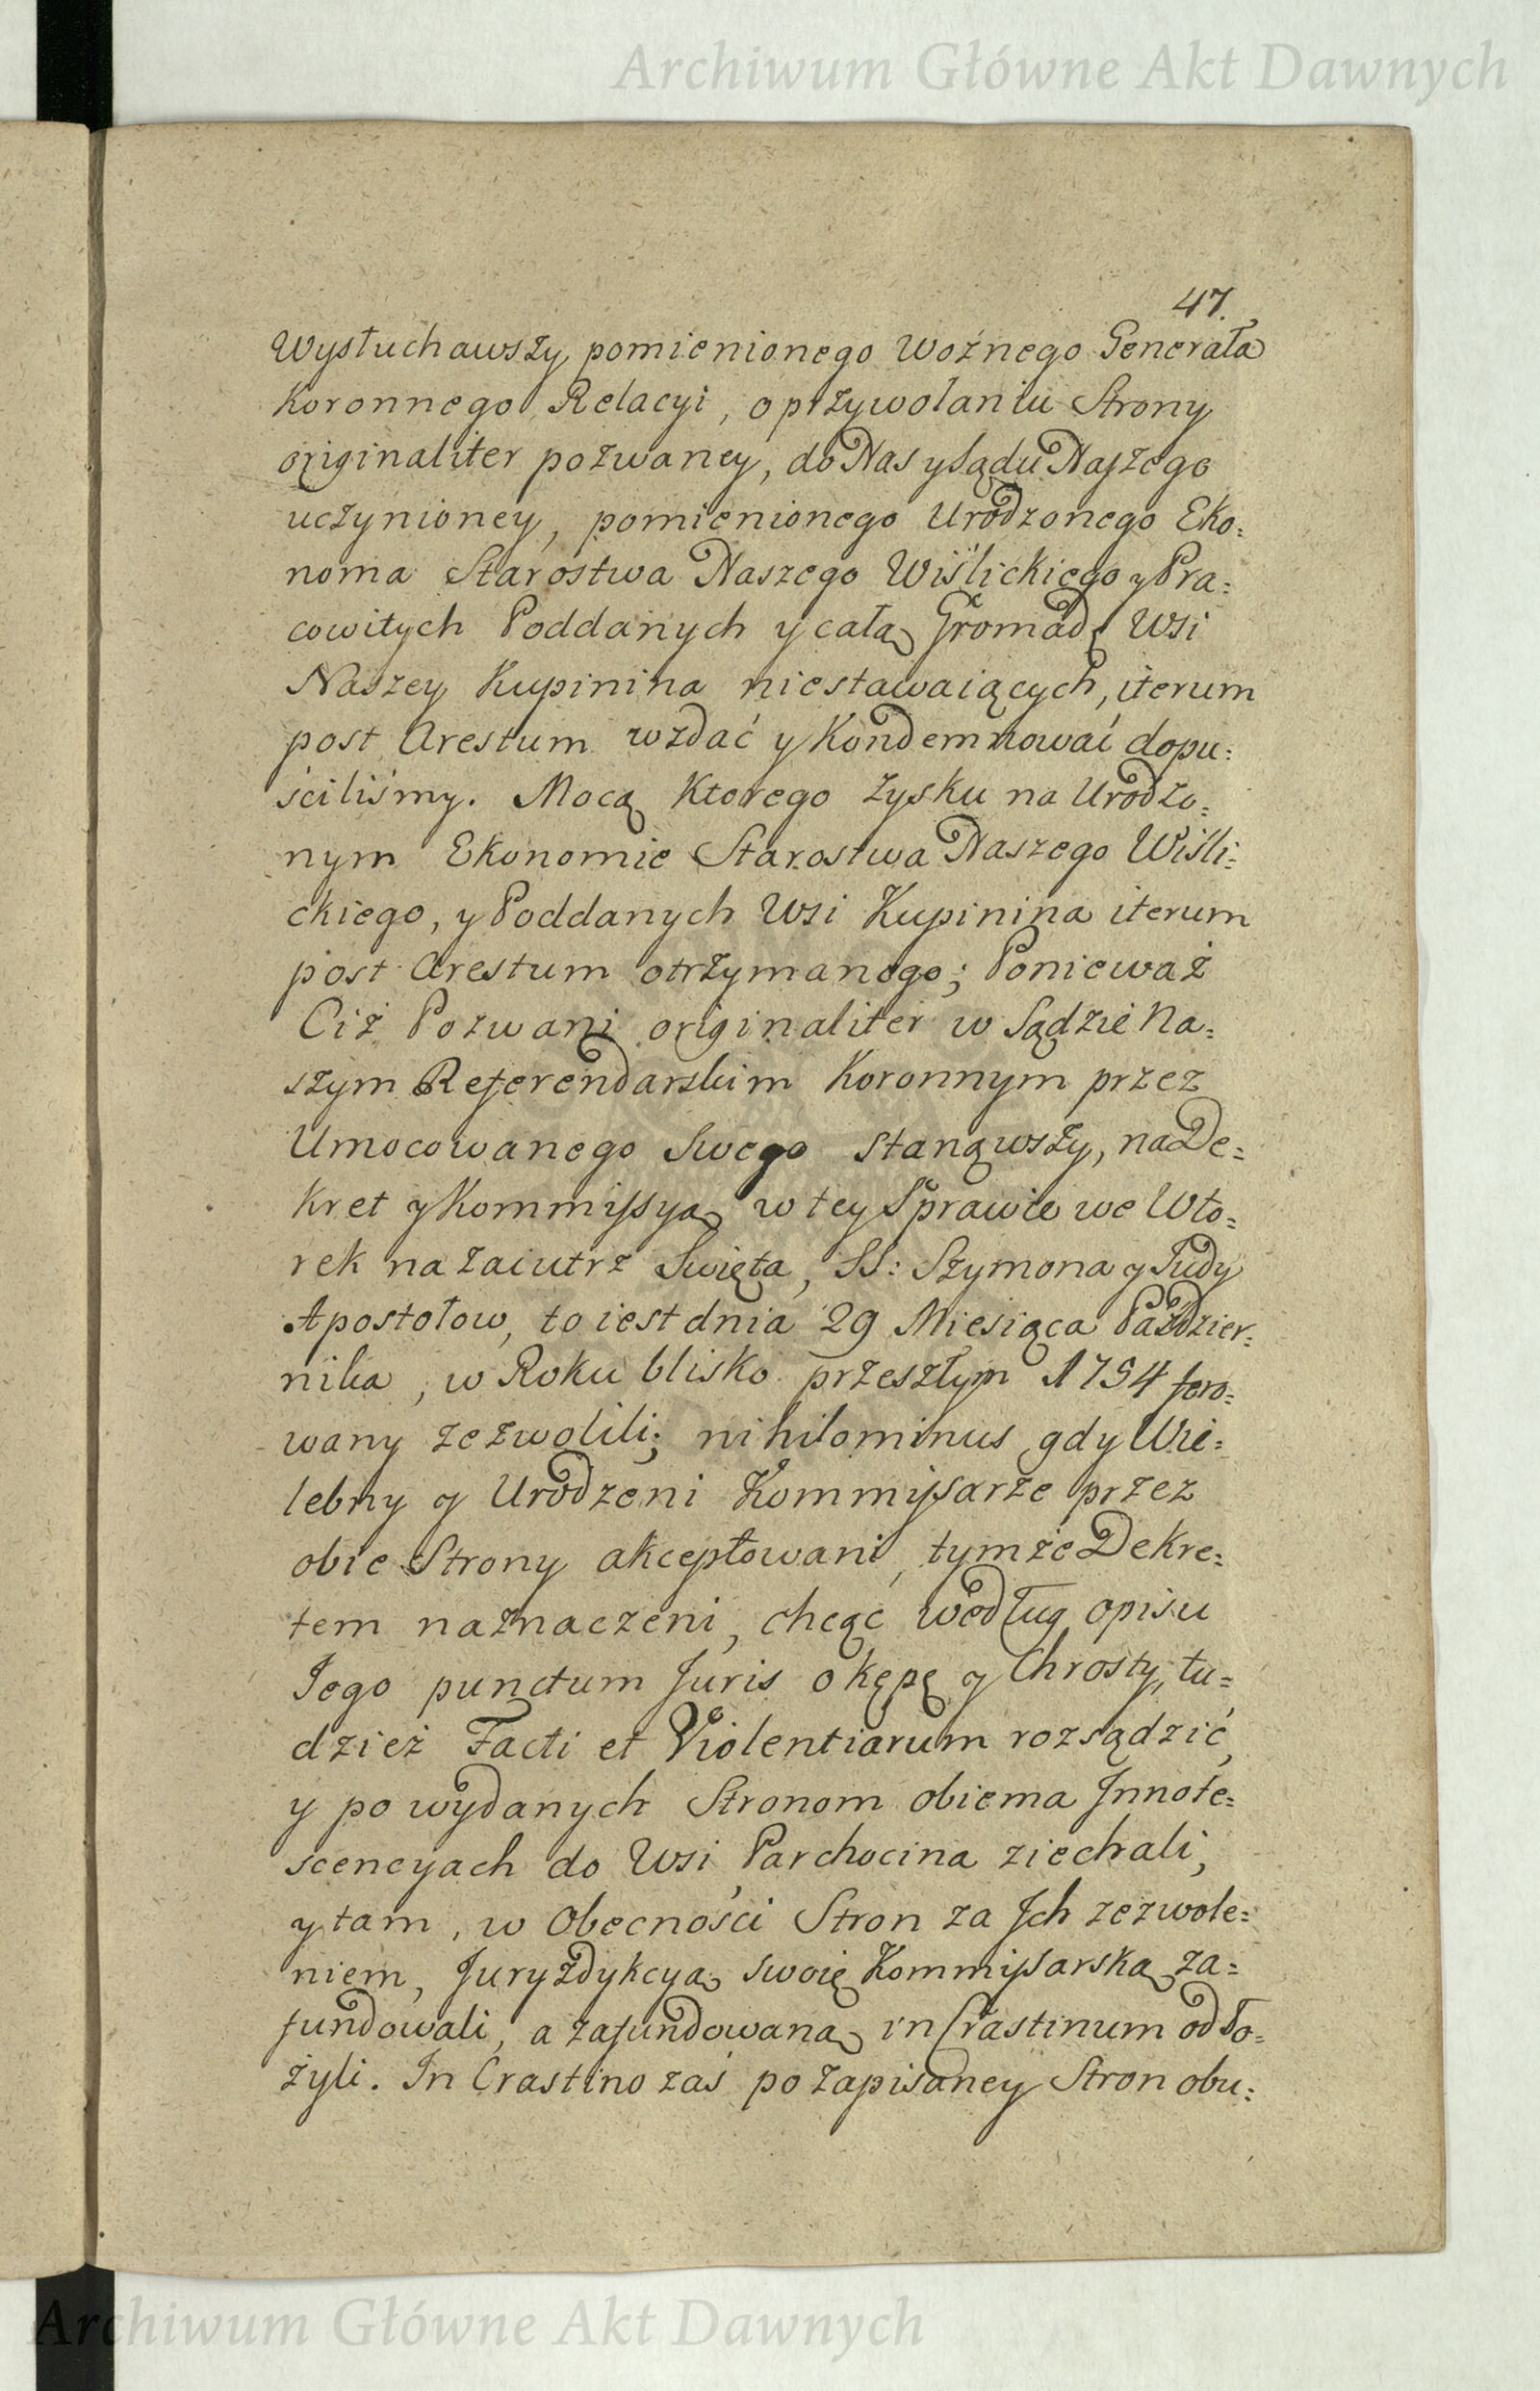 Archiwum Główne Akt Dawnych
47.
Wysłuchawszy pomienionego Woźnego Generała
Koronnego Relacyi, o przywołaniu Strony
originaliter pozwaney, do Nas y Sądu Naszego
uczynioney, pomienionego Urodzonego Eko=
noma Starostwa Naszego Wiślickiego y Pra=
cowitych Poddanych y całą Gromadę Wsi
Naszey Kupinina niestawaiących, iterum
post Arestum wzdać y Kondemnować dopu=
ściliśmy. Mocą Ktorego zysku na Urodzo=
nym Ekonomie Starostwa Naszego Wiśli=
ckiego, y Poddanych Wsi Kupinina iterum
post Arestum otrzymanego; Ponieważ
Ciż Pozwani originaliter w Sądzie Na=
szym Referendarskim Koronnym przez
Umocowanego Swego stanąwszy, na De=
kret y Kommissyą w tey Sprawie we Wto=
rek nazaiutrz Swięta, SS: Szymona y Judy
Apostołow, to iest dnia 29 Miesiąca Paździer=
nika, w Roku blisko przeszłym 1754 fero=
wany zezwolili; nihilominus gdy Wie=
lebny y Urodzeni Kommissarze przez
obie Strony akceptowani, tymże Dekre=
tem naznaczeni, chcąc według opisu
Jego punctum Juris o kępę y Chrosty, tu=
dzież Facti et Violentiarum rozsądzić,
y po wydanych Stronom obiema Innote=
scencyach do Wsi Parchocina ziechali,
y tam, w Obecności Stron za Jch zezwole=
niem, Juryzdykcyą swoię Kommissarską za=
fundowali, a zafundowaną in Crastinum odło=
żyli. In Crastino zaś po zapisaney Stron obu=
Archiwum Główne Akt Dawnych